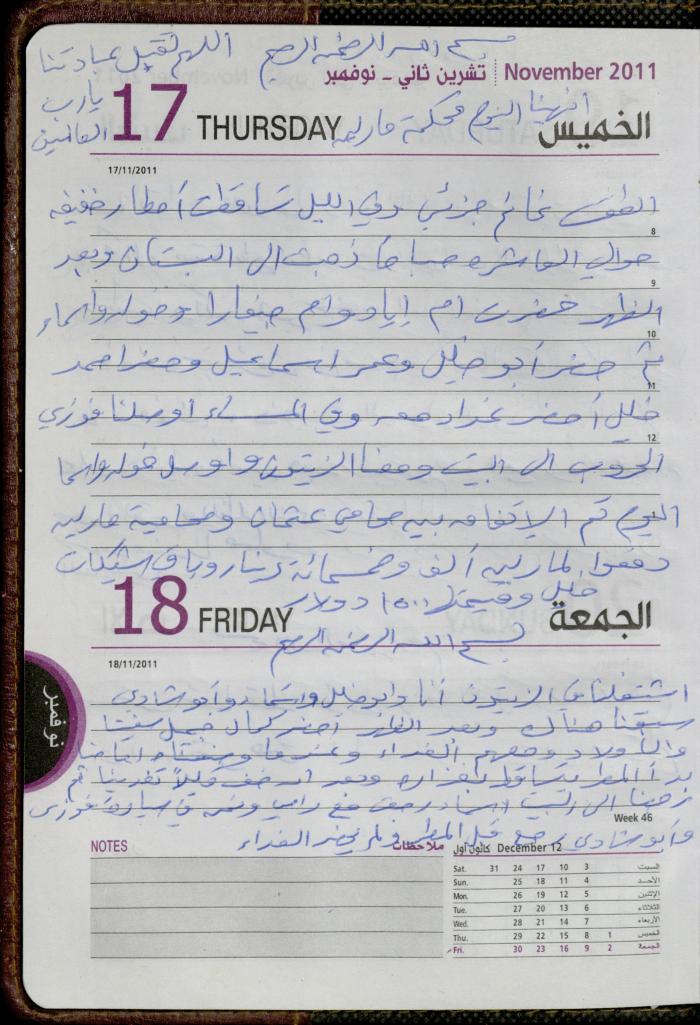 بسم الله الرحمن الرحيم اللهم تقبل عبادتنا
يارب
العالمين
تشرين ثاني - نوفمبر November 2011
17 THURSDAY الخميس
انهينا اليوم محكمة مارليه
17/11/2011
الطقس غائم جزئي وفي الليل تساقطت أمطار خفيفه
8
حوالي العاشره صباحاً ذهبت الى البستان وبعد
9
الظهر حضرت ام إياد وام وخوله واسماء
10
ثم حضر أبو خليل وعمر اسماعيل وحضر احمد
11
خليل أحضر غداء معه وفي المساء أوصلنا فوزي
12
الى البيت ومعنا الزيتون و اوصل خوله واسما
اليوم تم الاتفاق بين محامي عثمان ومحامية مارليه
دفعوا لمارليه ألف وخمسمائة دينار وباقي شيكات
خليل وقيمة (1500) دولار
18 FRIDAY الجمعة
بسم الله الرحمن الرحيم
18/11/2011
اشتغلنا في الزيتون أنا وابو خليل واسماء وأبو شادي
سبقنا هناك وبعد الظهر أحضر كمال
والأولاد ومعهم الغداء وعندما
بدأ المطر يتساقط بغزاره وبعد ان خف قليلاً تغدينا ثم
ذهبنا الى البيت اسماء رجعت مع رامي ونحن في سيارة فوزي
وأبو شادي رجع قبل المطر ولم يحضر الغداء
نوفمبر
Week 46
NOTES ملاحظات
كانون أول December 12
Sat. 31 24 17 10 3 السبت
Sun. 25 18 11 4 الأحد
Mon. 26 19 12 5 الإثنين
Tue. 27 20 13 6 الثلاثاء
Wed. 28 21 14 7 الأربعاء
Thu. 29 22 15 8 1 الخميس
Fri. 30 23 16 9 2 الجمعة